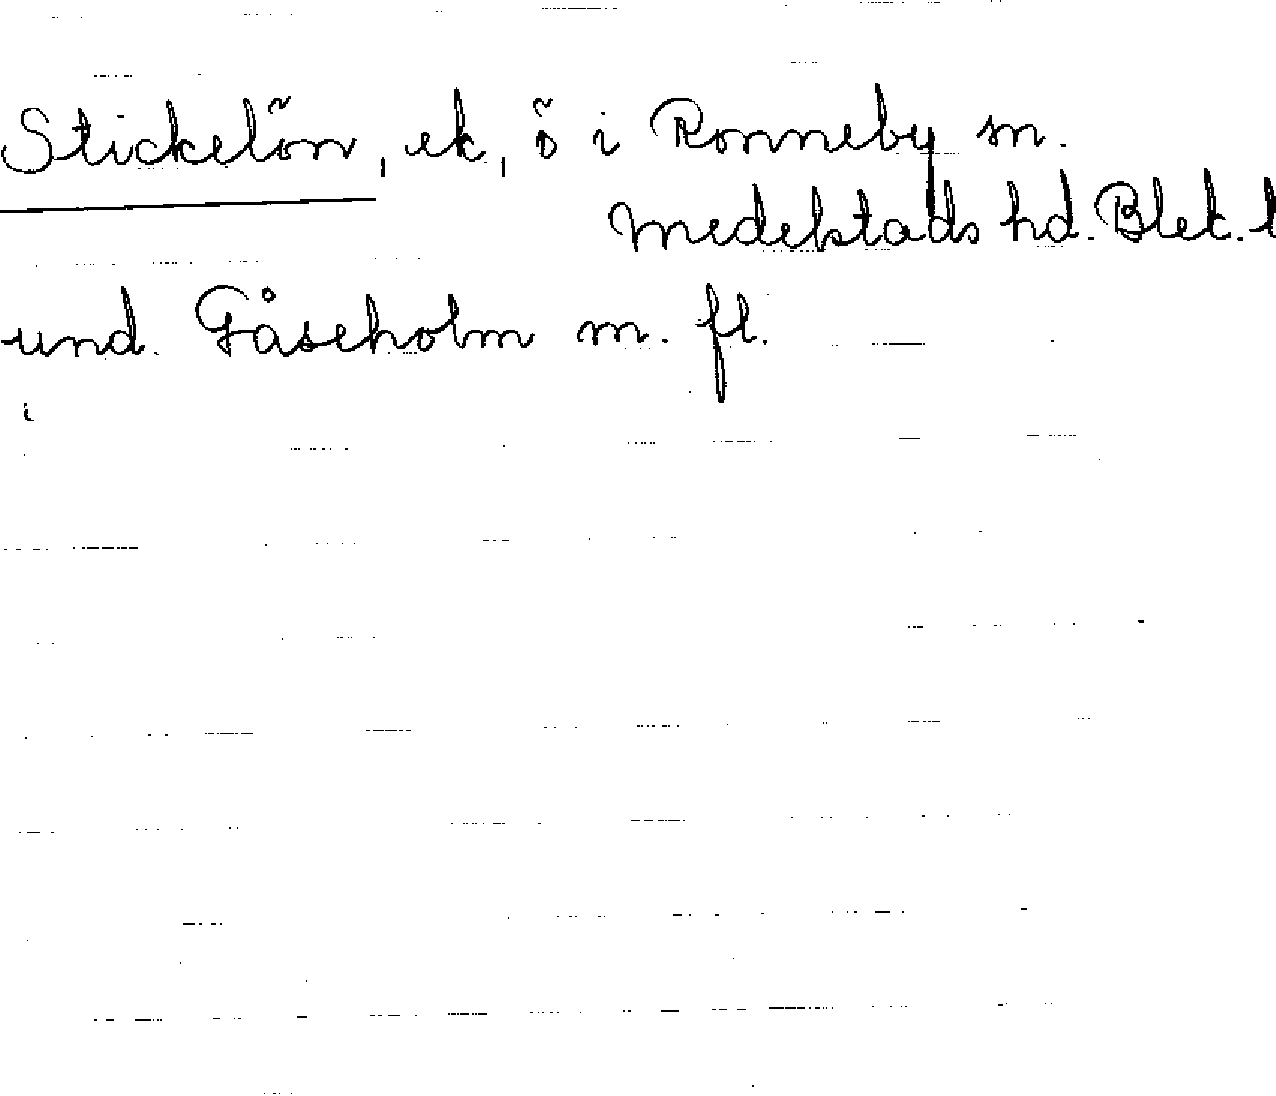 Stickelön, ek, ö i Ronneby sn.
Medelstads hd. Blek. l
und. Gåseholm m. fl.